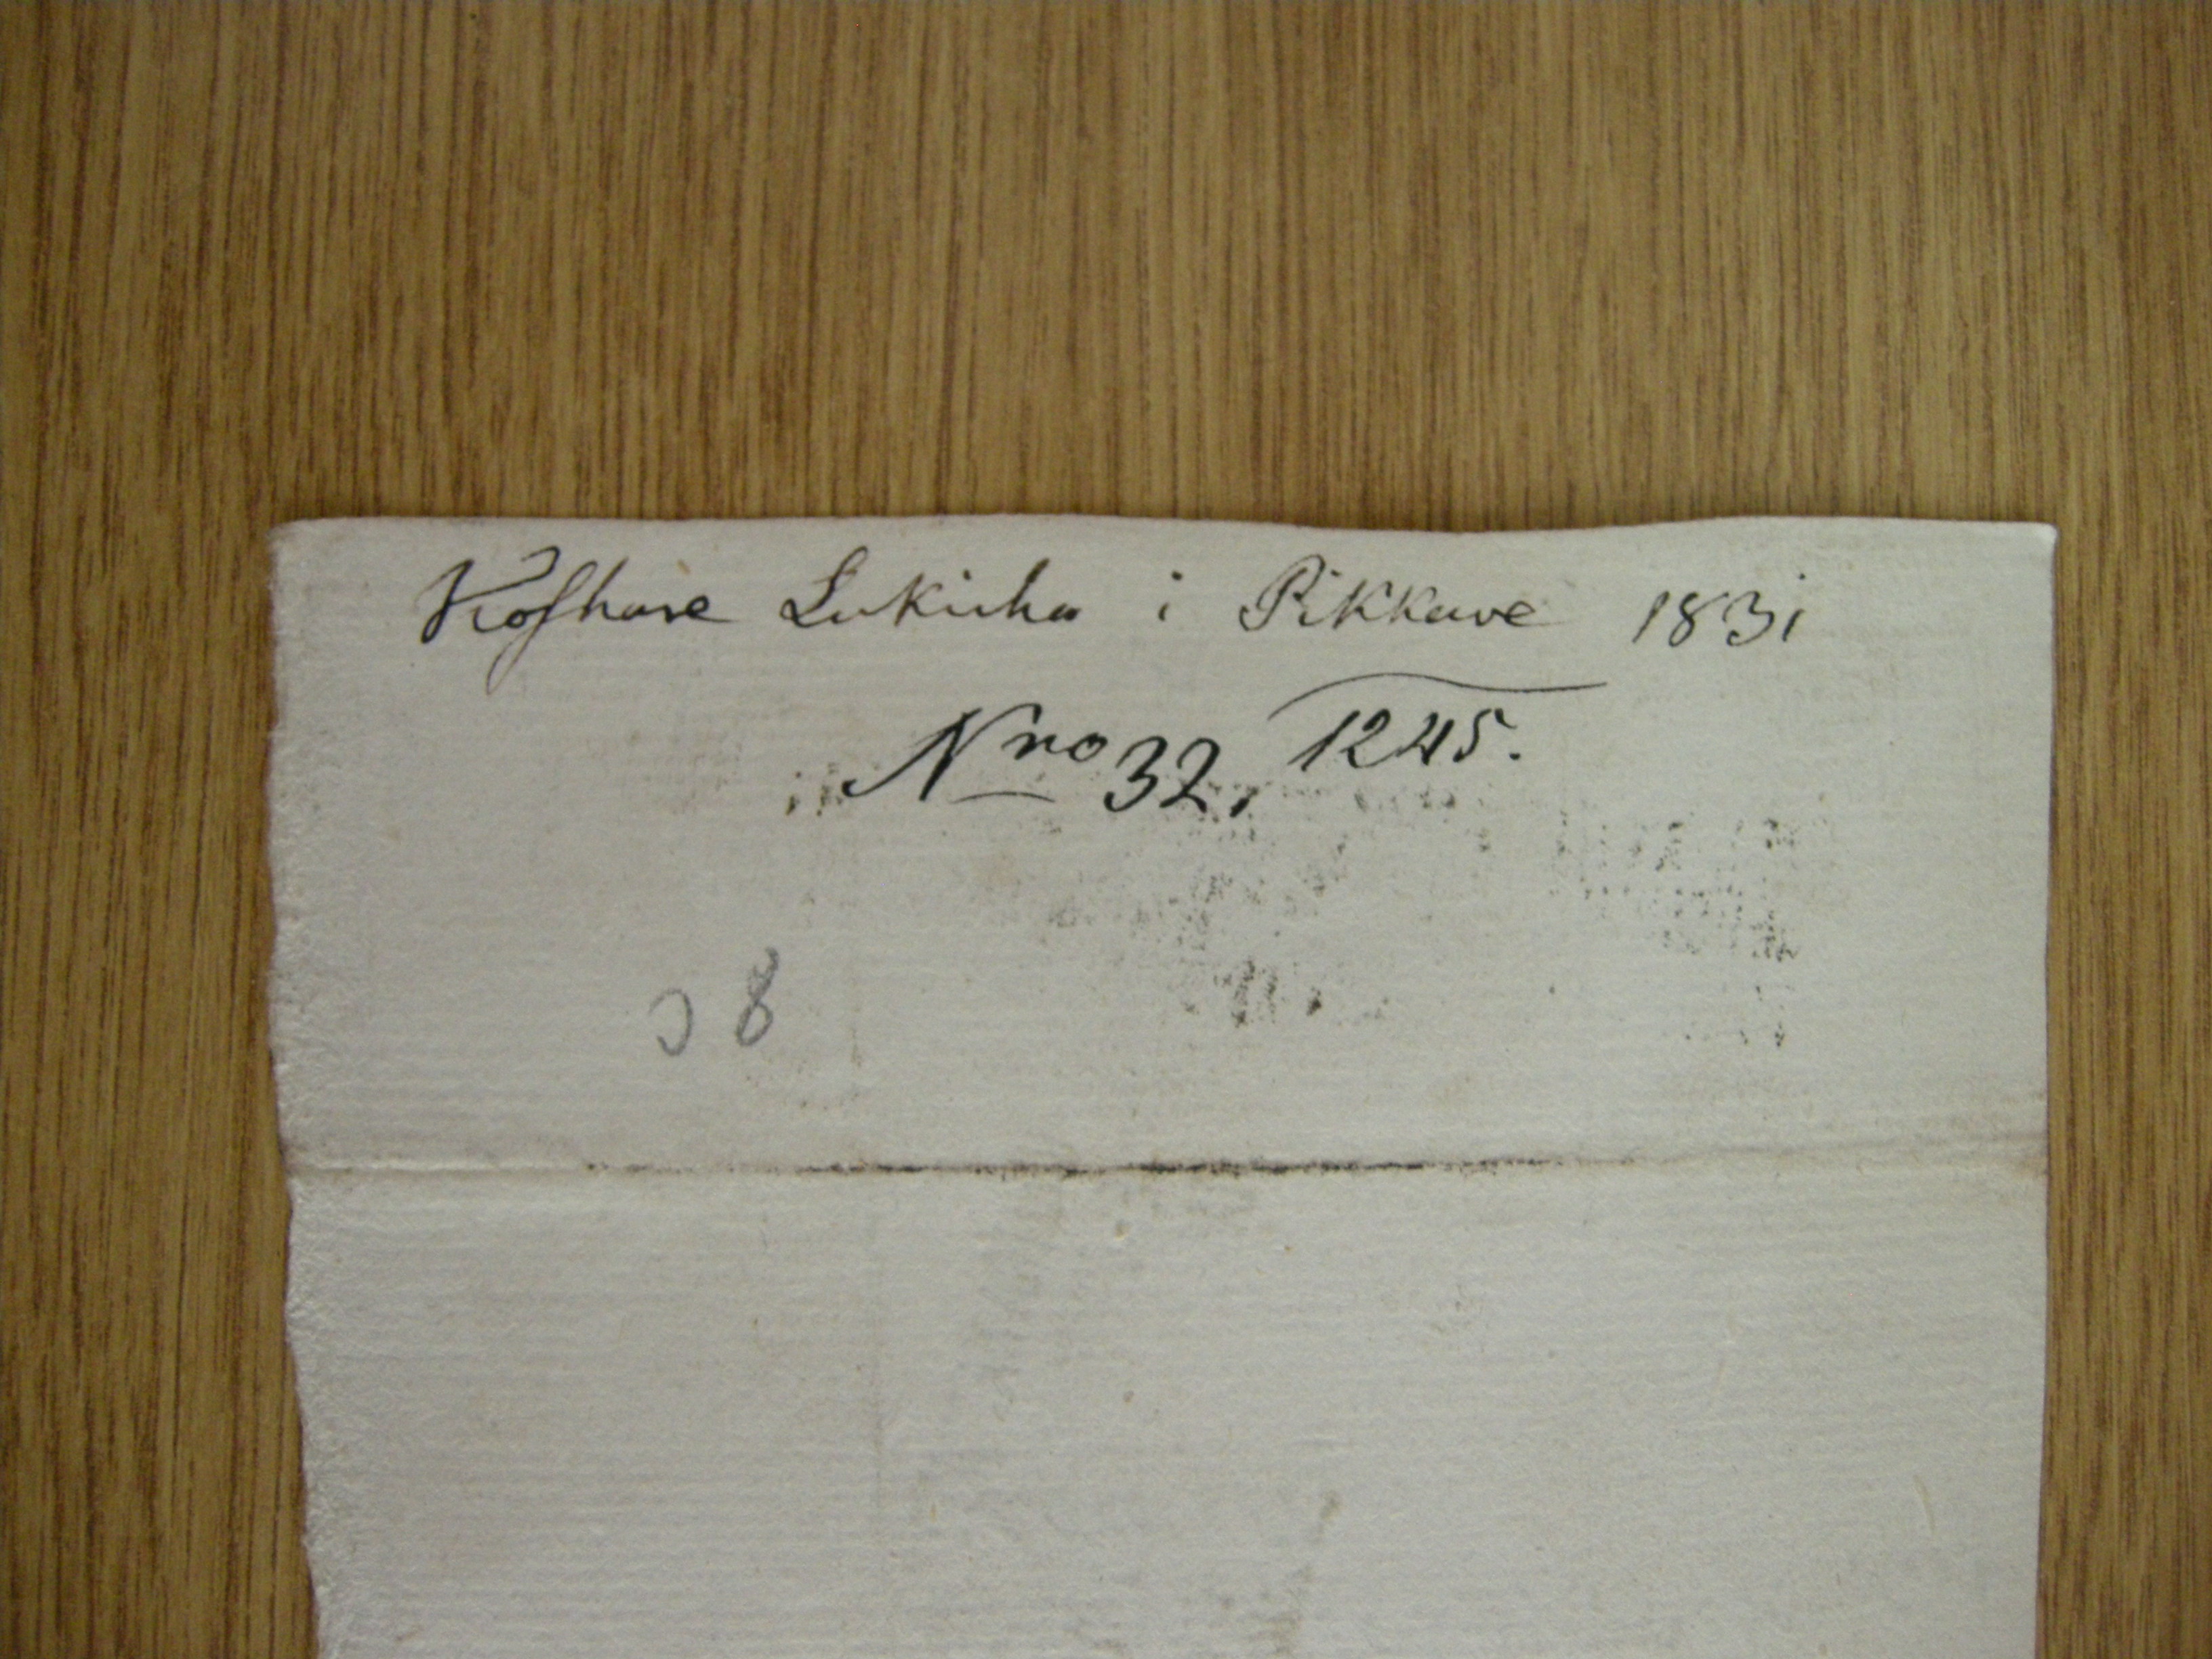 Koshare Lukicha i Pikkave 1831
Nro 32, 1245.
8